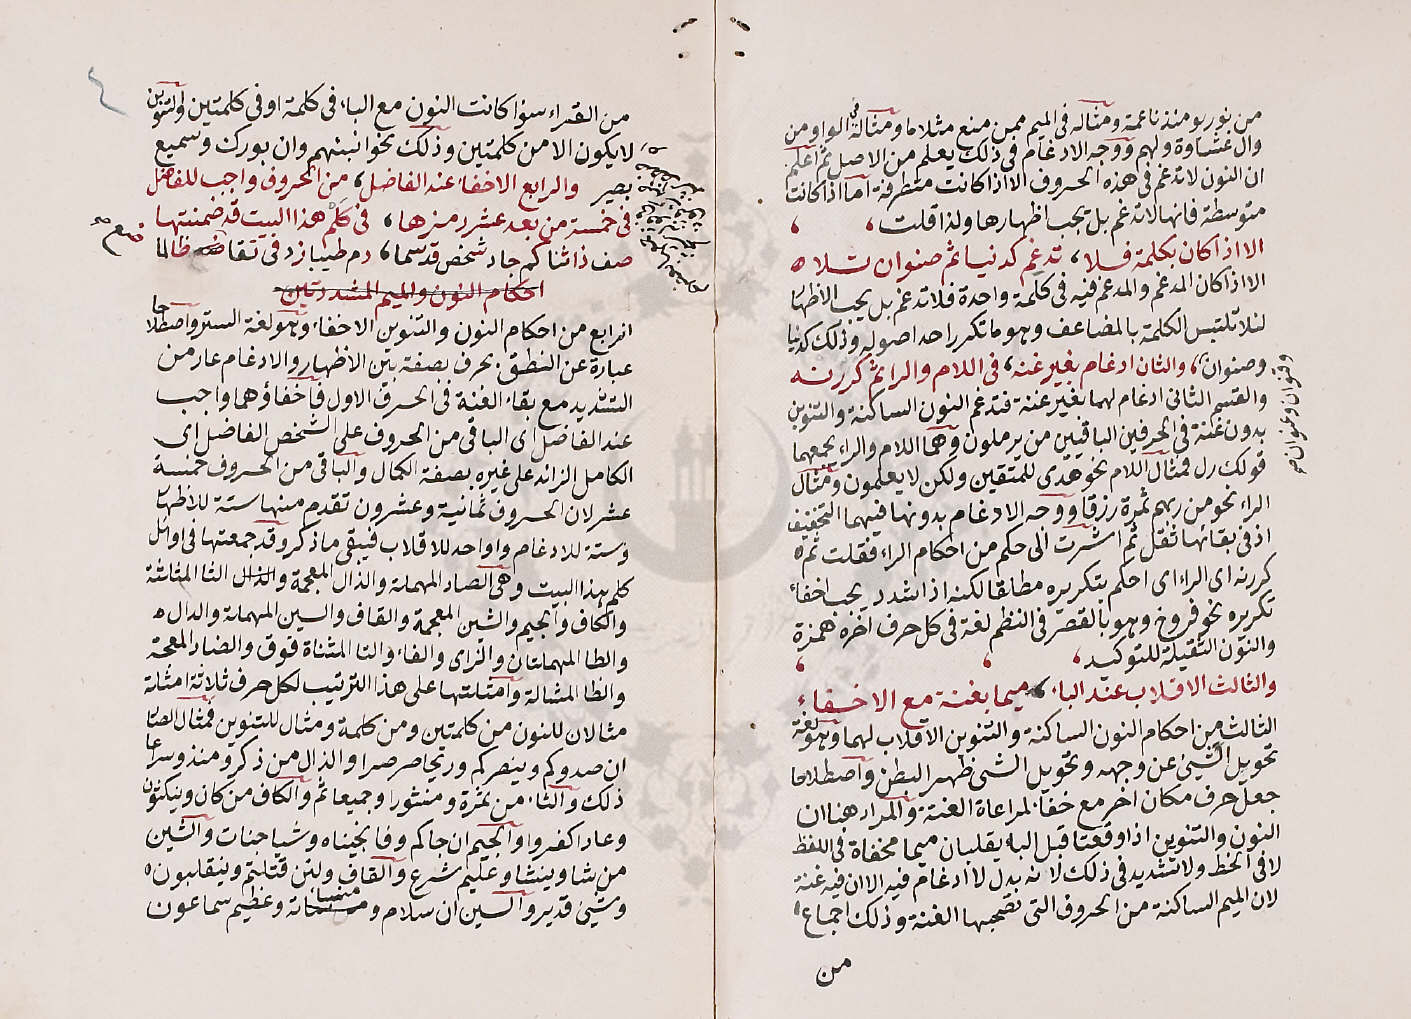 من نور يومئذ ناعمة ومثاله في الميم ممن منع مثلا ما ومثاله في الواو من
وال غشاوة ولهم ووجه الادغام في ذلك يعلم من الاصل ثم اعلم
ان النون لا تدغم في هذه الحروف الا اذا كانت متطرفة اما اذا كانت
متوسطة فانها لا تدغم بل يجب اظهارها ولذا قلت
الا اذا كان بكلمة فلا تدغم كدنيا ثم صنوان تلا
الا اذا كان المدغم والمدغم فيه في كلمة واحدة فلا تدغم بل يجب الاظهار
لئلا تلتبس الكلمة بالمضاعف وهو ما تكرر احد اصوله وذلك كدنيا
وصنوان والثان ادغام بغير غنه في اللام والرا ثم كررنه
وقنوان وعنوان صح
والقسم الثاني ادغام لهما بغير غنة فتدغم النون الساكنة والتنوين
بدون غنة في الحرفين الباقيين من يرملون وهما اللام والراء يجمعهما
قولك رل فمثال اللام نحو هدى للمتقين ولكن لا يعلمون ومثال
الراء نحو من ربهم ثمرة رزقا ووجه الادغام بدونها فيهما التخفيف
اذ في بقائها ثقل ثم اشرت الى حكم من احكام الراء فقلت ثم
كررنه اى الراء اى احكم بتكريره مطلقا لكنه اذا شدد يجب اخفاء
تكريره نحو فروخ وهو بالقصر في النظم لغة في كل حرف اخره همزة
والنون الثقيلة للتوكيد
والثالث الاقلاب عند الباء ميما بغنة مع الاخفاء
الثالث من احكام النون الساكنة والتنوين الاقلاب لهما وهو لغة
تحويل الشئ عن وجهه وتحويل الشئ ظهر البطن واصطلاحا
جعل حرف مكان اخر مع خفاء لمراعاة الغنة والمراد هنا ان
النون والتنوين اذا وقعتا قبل الباء يقلبان ميما مخفاة في اللفظ
لا في الخط ولا تشديد في ذلك لانه بدل لا ادغام فيه الا ان فيه غنة
لان الميم الساكنة من الحروف التي تصحبها الغنة وذلك اجماع
من
من القراء سوا كانت النون مع الباء في كلمة او في كلمتين والتنوين
لا يكون الا من كلمتين وذلك نحو انبئهم وان بورك وسميع
بصير والرابع الاخفاء عند الفاضل من الحروف واجب للفاضل
في خمسة من بعد عشر رمزها في كلم هذا البيت قد ضمنتها
صف ذا ثنا كم جاد شخص قد سما دم طيبا زد في تقا ضع ظالما
احكام النون والميم المشددتين
الرابع من احكام النون والتنوين الاخفاء وهو لغة الستر واصطلاحا
عبارة عن النطق بحرف بصفة بين الاظهار والادغام عار من
التشديد مع بقاء الغنة في الحرف الاول فاخفاؤهما واجب
عند الفاضل اى الباقي من الحروف على الشخص الفاضل اى
الكامل الزائد على غيره بصفة الكمال والباقي من الحروف خمسة
عشر لان الحروف ثمانية وعشرون تقدم منها ستة للاظهار
وستة للادغام وواحد للاقلاب فيبقى ما ذكر وقد جمعتها في اوائل
كلم هذا البيت وهي الصاد المهملة والذال المعجمة والثا المثلثة
والكاف والجيم والشين المعجمة والقاف والسين المهملة والدال
والطا المهملتان والزاى والفاء والتا المثناة فوق والضاد المعجمة
والظا المشالة وامثلتها على هذا الترتيب لكل حرف ثلاثة امثلة
مثالان للنون من كلمتين ومن كلمة ومثال للتنوين فمثال الصاد
ان صدوكم وينصركم وريحا صرصرا والذال من ذكر ومنذر وسراعا
ذلك والثاء من ثمرة ومنثورا وجميعا ثم والكاف من كان وينكثون
وعادا كفروا والجيم ان جاكم وفانجيناه وشيا جنات والشين
من شا وينشا وعليم شرع والقاف ولئن قتلتم وينقلبون
وشئ قدير والسين ان سلام ومنساته وعظيم سماعون